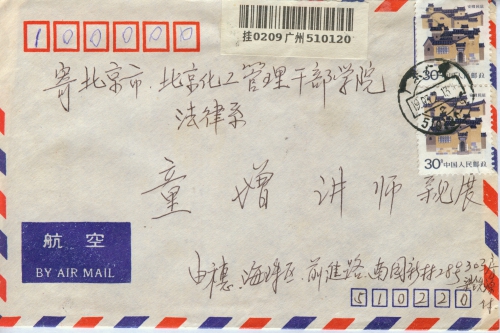 100000
挂0209 广州 510120
寄北京市.北京化工管理干部学院
法律系
童 增 讲 师 亲展
30分 中国人民邮政
30分 中国人民邮政
航 空
BY AIR MAIL
由穗.海珠区.前進路.南园新村28号
510220